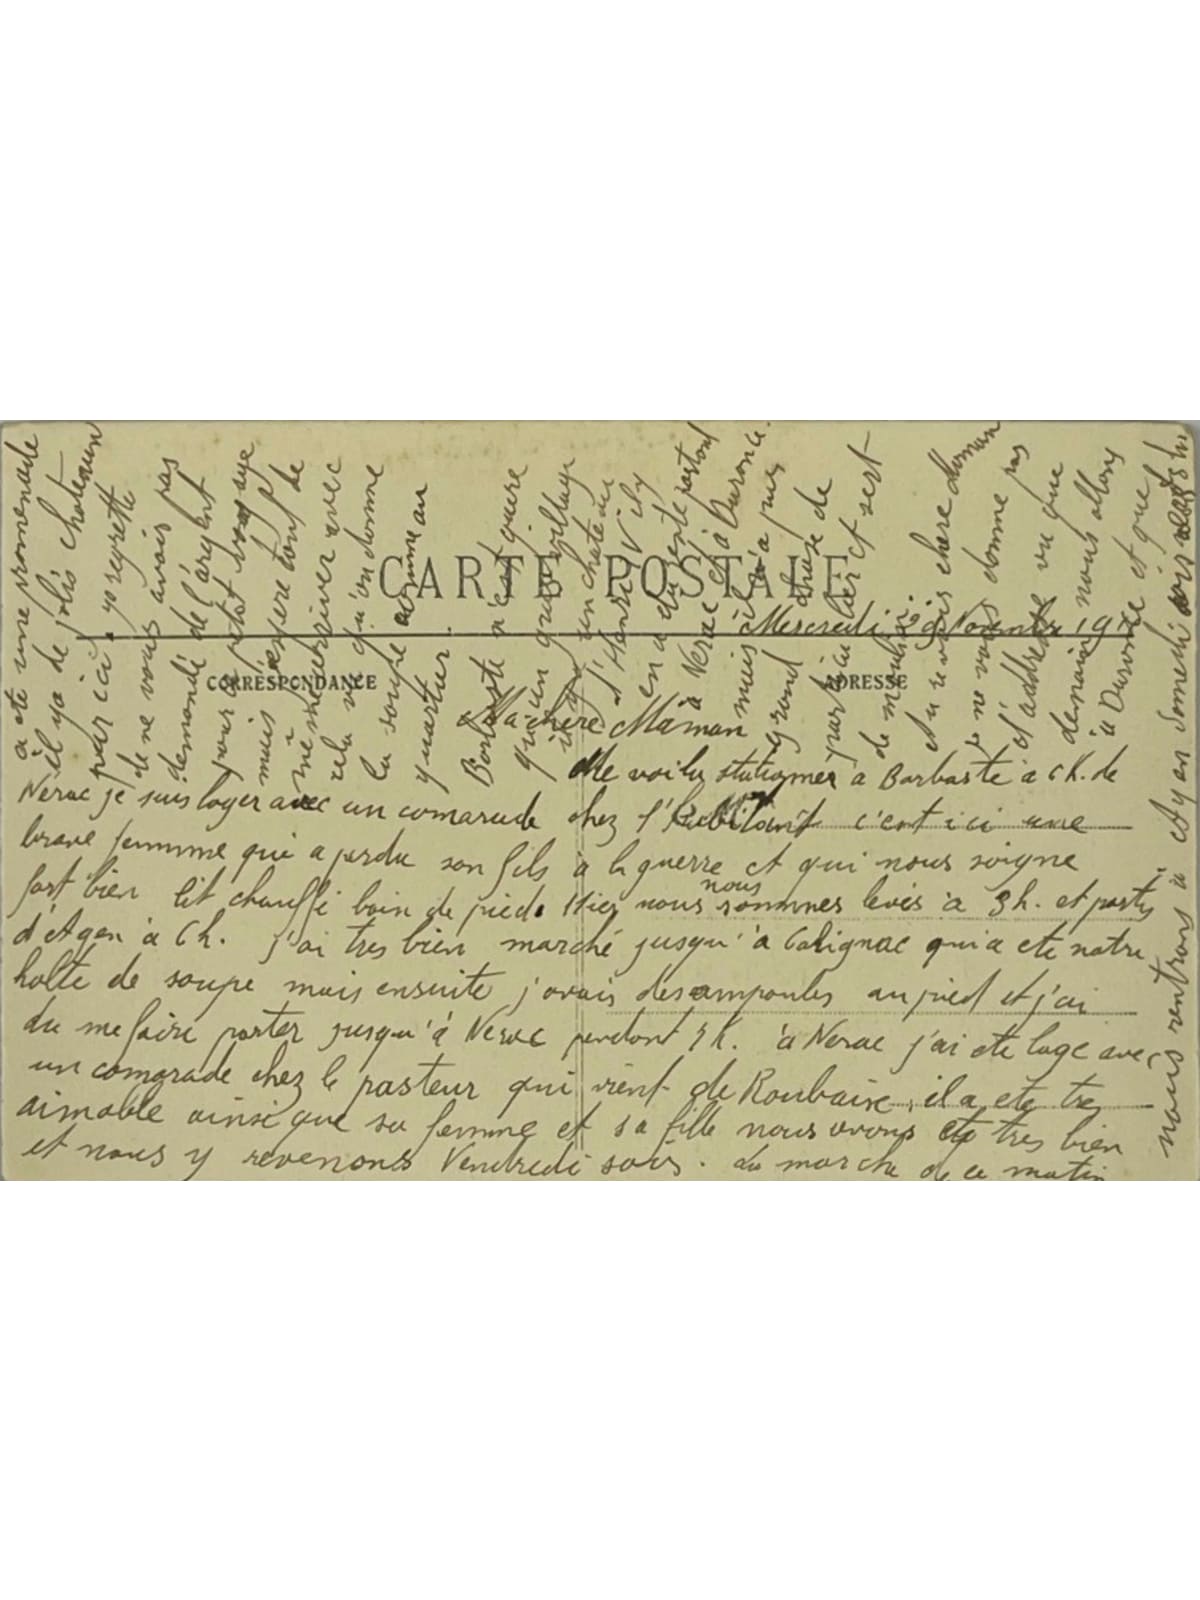 CARTE POSTALE
CORRESPONDANCE
ADRESSE
Mercredi Novembre 191
Ma chère Maman
Me voila stationner a Barbaste a 6 K. de
Nerac je suis loger avec un camarade chez l'habitant c'est ici une
brave femmme qui a perdu son fils à la guerre et qui nous soigne
fort bien lit chauffé bain de pied. Hier nous nous sommes levés à 3 h. et partis
d'Agen à 6 h. j'ai tres bien marché jusqu'à Calignac qui a ete notre
halte de soupe mais ensuite j'avais des ampoules au pied et j'ai
du me faire porter jusqu'à Nerac pendant K. à Nerac j'ai ete loge avec
un comarade chez le pasteur qui vient de Roubaix, il a ete tres
aimable ainsi que sa femme et sa fille nous avons ete tres bien
et nous y revenons Vendredi soir. La marche de ce matin
a ete une promenade
il y a de jolis chateaux
par ici. je regrette
de ne vous avois pas
demandé de l'argent
pour petit voyage
mais j'espere tout de
même arriver avec
cela vu qu'on donne
la soupe comme au
quartier.
Barbaste n'est guere
qu'un gros village
il y a un chateau
d'Henri IV il y
en a du reste partout
à Nerac et à Durance.
mais il n'a pas
grand chose de
particulier et sert
de moulin.
Au revoir chere Maman
je ne vous donne pas
d'addresse vu que
demain nous allons
à Durance et que
nous rentrons à Agen Samedi soir